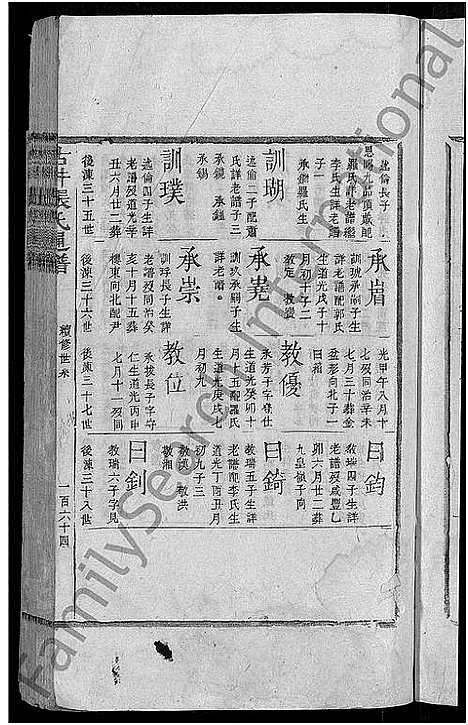 述倫長子
恩賜九品頂戴配
羅氏詳老譜繼
李氏生詳老譜
子一
承爝羅氏生
訓瑚
述倫二子配蕭
氏詳老譜子三
承鏡 承鈺
承錫
訓璞
述倫四子生詳
老譜歿道光辛
丑六月廿二葬
後湅三十五世
承岩
訓琥承嗣子生
詳老譜配郭氏
生道光戊子十
月初十子二
教定
承堯
訓玖承嗣子生
詳老譜
承崇
訓琈長子生詳
老譜歿同治癸
亥十月十五葬
樓東向北配尹
後湅三十六世
光甲午八月十
七歿同治辛未
七月三十葬金
盆形向北子一
曰稻
教優
承芳子字登仕
生道光癸卯十
月十五配羅氏
生道光庚戌七
月初九
教位
承拔長子字守
仁生道光丙申
七月十一歿同
後湅三十七世
曰鈞
教瑞四子生詳
老譜歿咸豐乙
卯六月廿二葬
九皇嶺子向
曰錡
教瑞五子生詳
老譜配李氏生
道光丁酉五月
初九子三
教漢 敬洪
敬湘
曰釗
教瑞六子字見
後湅三十八世
張氏通譜
續修世系
一百六十四
FamilySearch International